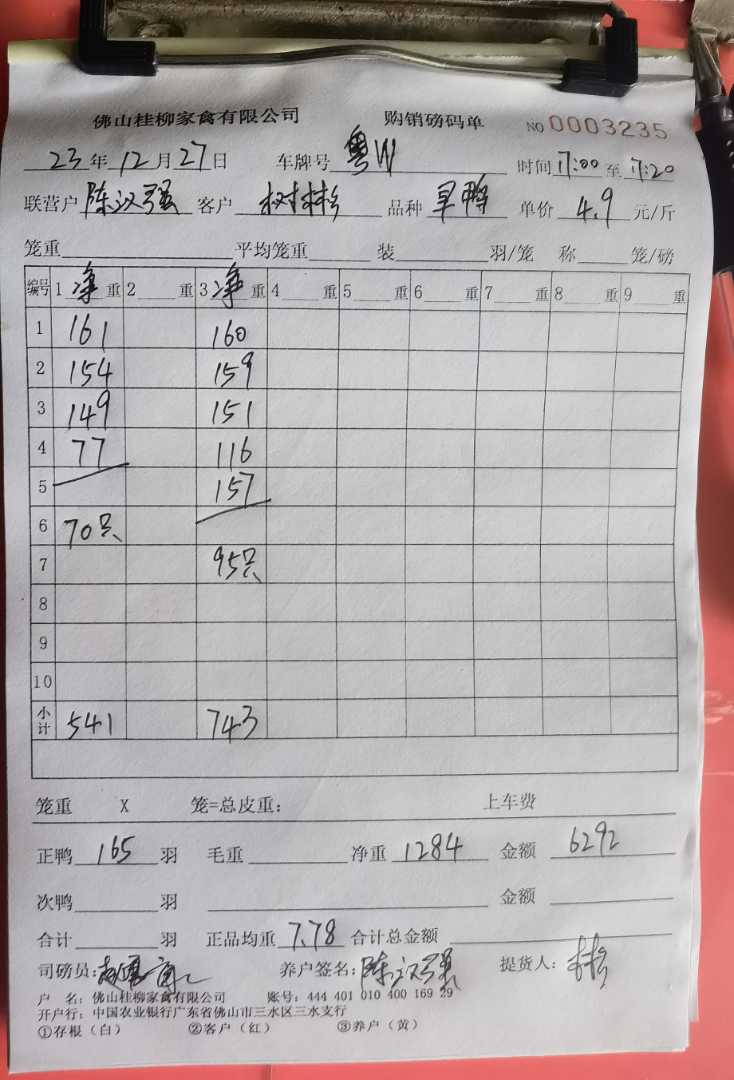 佛山桂柳家禽有限公司 购销磅码单 NO 0003235
23年12月27日 车牌号 粤W 时间 17:00 至 17:20
联营户 陈汉强 客户 树彬 品种 旱鸭 单价 4.9 元/斤
笼重 平均笼重 装 羽/笼 称 笼/磅
编号 1 净 重 2 重 3 净 重 4 重 5 重 6 重 7 重 8 重 9 重
1 161 160
2 154 159
3 149 151
4 77 116
5 157
6 70只
7 95只
8
9
10
小计 541 743
笼重 X 笼=总皮重: 上车费
正鸭 165 羽 毛重 净重 1284 金额 6292
次鸭 羽 金额
合计 羽 正品均重 7.78 合计总金额
司磅员: 养户签名: 陈汉强 提货人: 彬
户 名: 佛山桂柳家禽有限公司 账号: 444 401 010 400 169 29
开户行: 中国农业银行广东省佛山市三水区三水支行
①存根(白) ②客户(红) ③养户(黄)